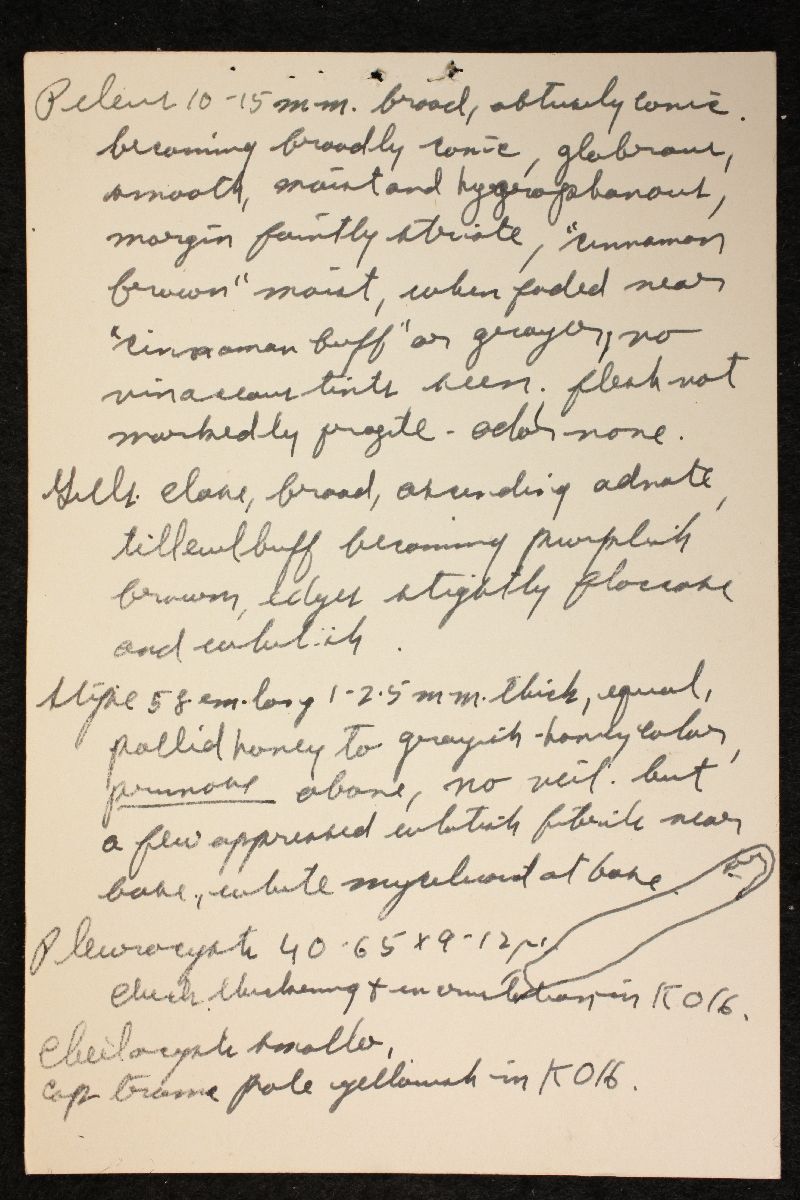 Pileus 10-15 m.m. broad, obtusely conic.
becoming broadly conic, glabrous,
smooth, moist and hygrophanous,
margin faintly striate, "cinnamon
brown" moist, when faded near
"cinnamon buff" or grayer, no
vinaceous tints seen. flesh not
markedly fragile - odor none.
Gills close, broad, ascending adnate,
tilleul buff becoming purplish
brown, edges slightly floccose
and whitish.
Stipe 5 8 cm. long 1-2.5 m m. thick, equal,
pallid honey to grayish-honey color,
pruinose above, no veil. but
a few appressed whitish fibrils near
base, white mycelium at base
Pleurocysts 40-65 x 9-12 µ
check thickening & incrustation in KOH.
Cheilocysts smaller,
Cap trama pale yellowish in KOH.